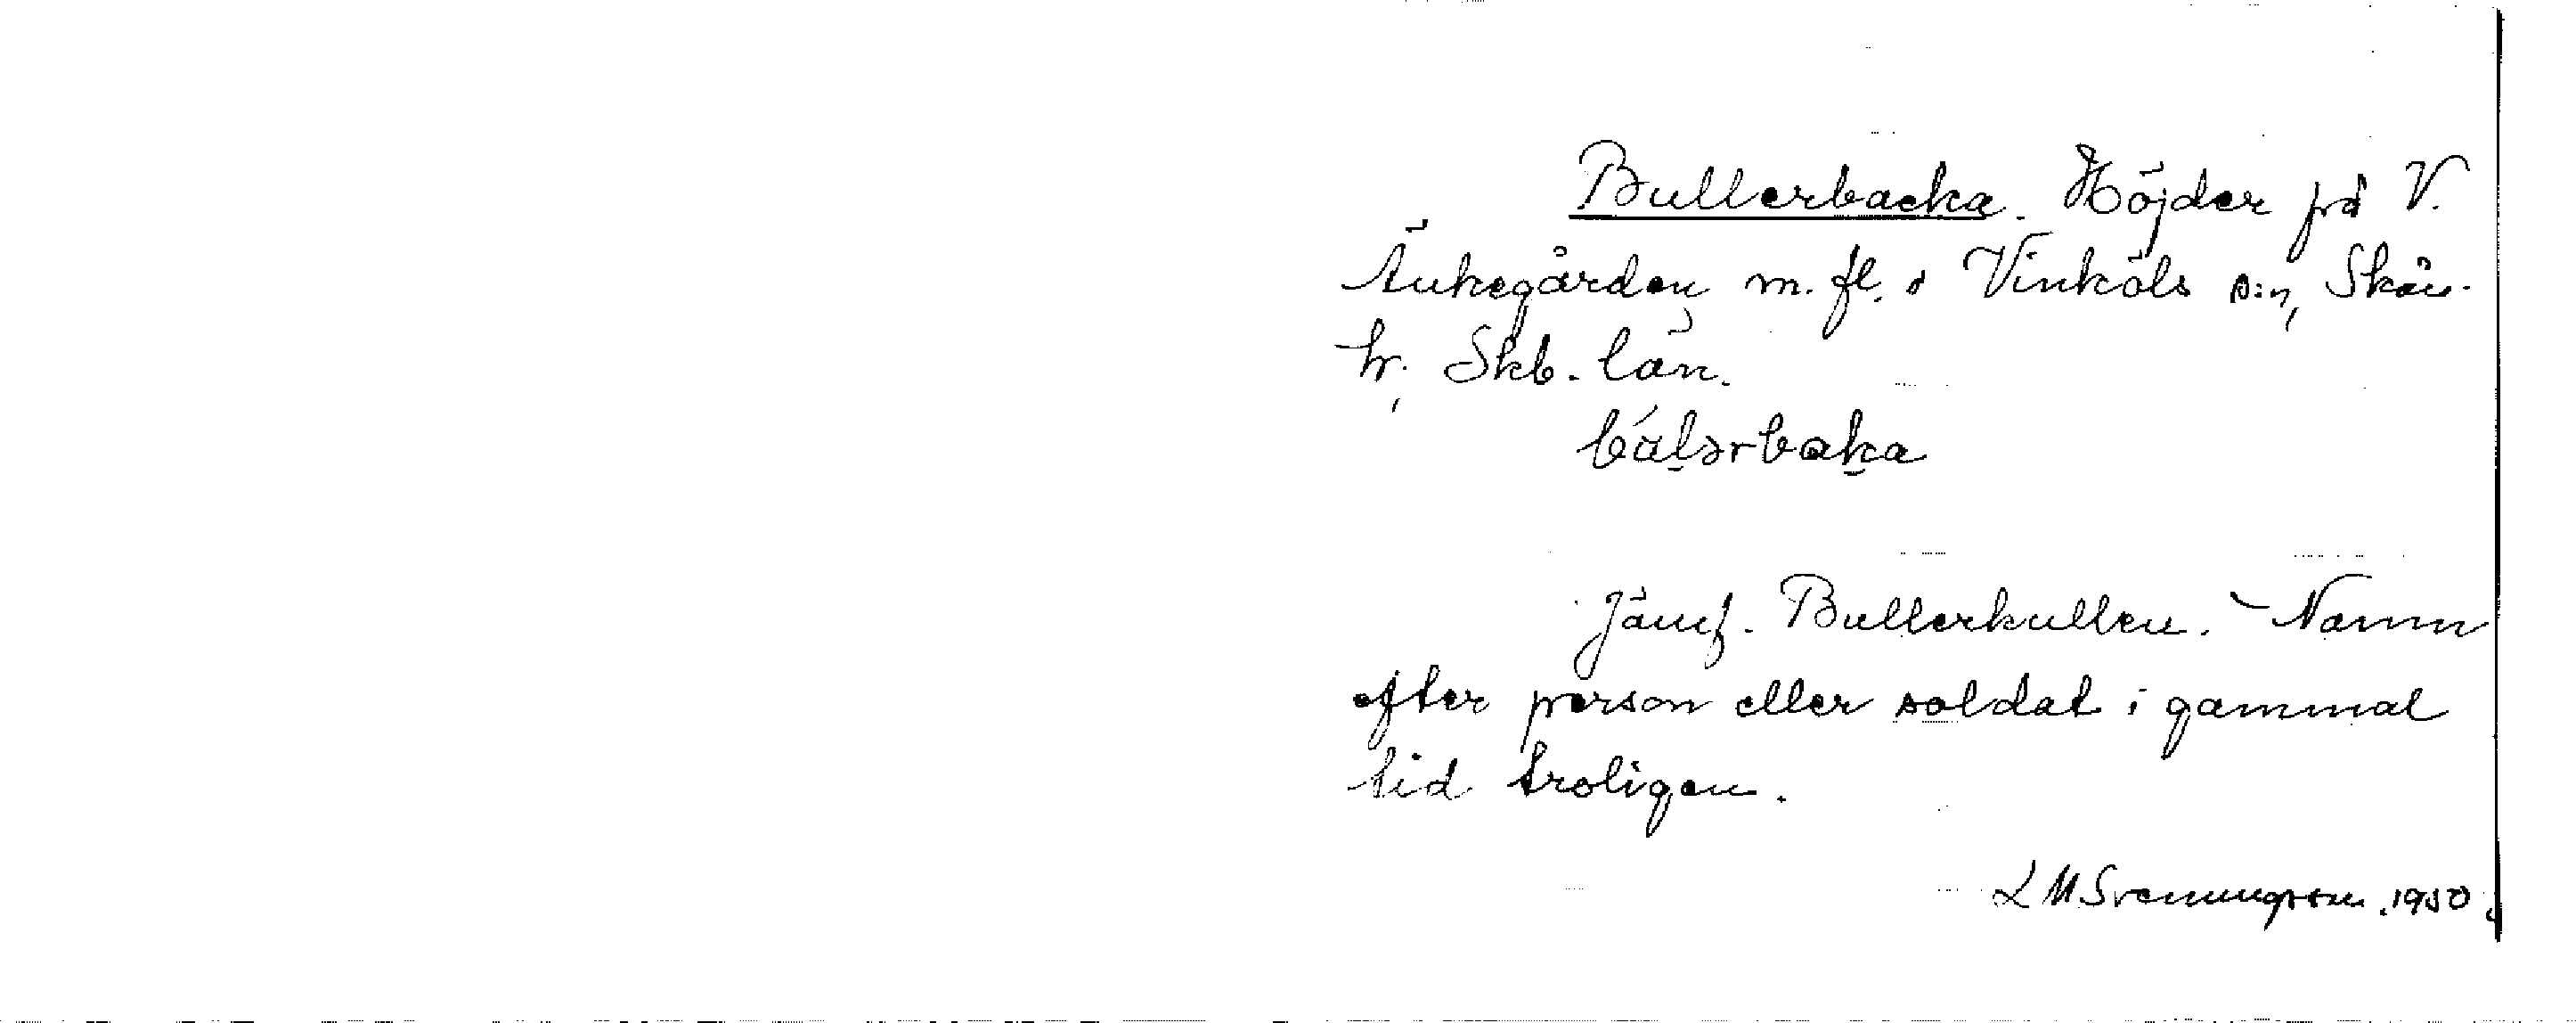 Bullerbacka. Höjder på V.
Änkegården m. fl. i Vinköls s:n, Skån.
hr. Skb. län.
búlərbaka
Jämf. Bullerkullen. – Namn
efter person eller soldat i gammal
tid troligen.
L M Svenungsson. 1950.